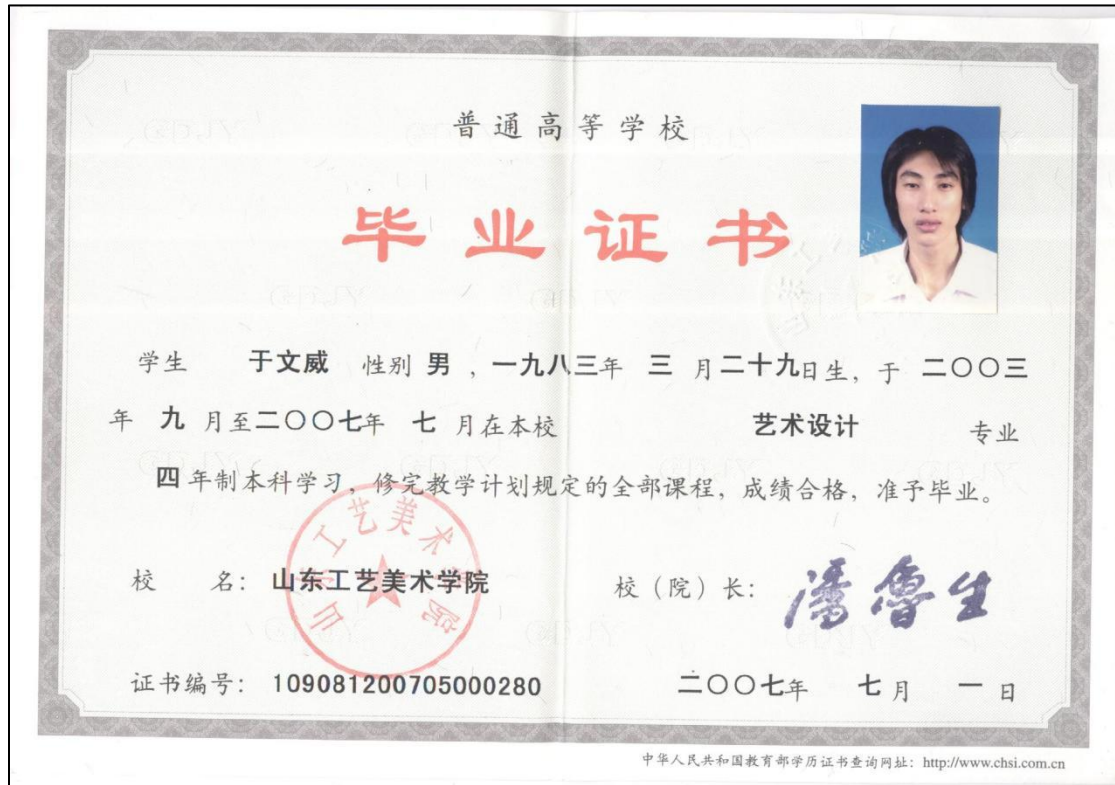 普通高等学校
毕业证书
学生 于文威 性别 男 ，一九八三年 三 月二十九日生，于 二〇〇三
年 九 月至二〇〇七年 七 月在本校 艺术设计 专业
四年制本科学习，修完教学计划规定的全部课程，成绩合格，准予毕业。
山东工艺美术学院
校 名：山东工艺美术学院 校（院）长：潘鲁生
证书编号：109081200705000280 二〇〇七年 七月 一日
中华人民共和国教育部学历证书查询网址：http://www.chsi.com.cn